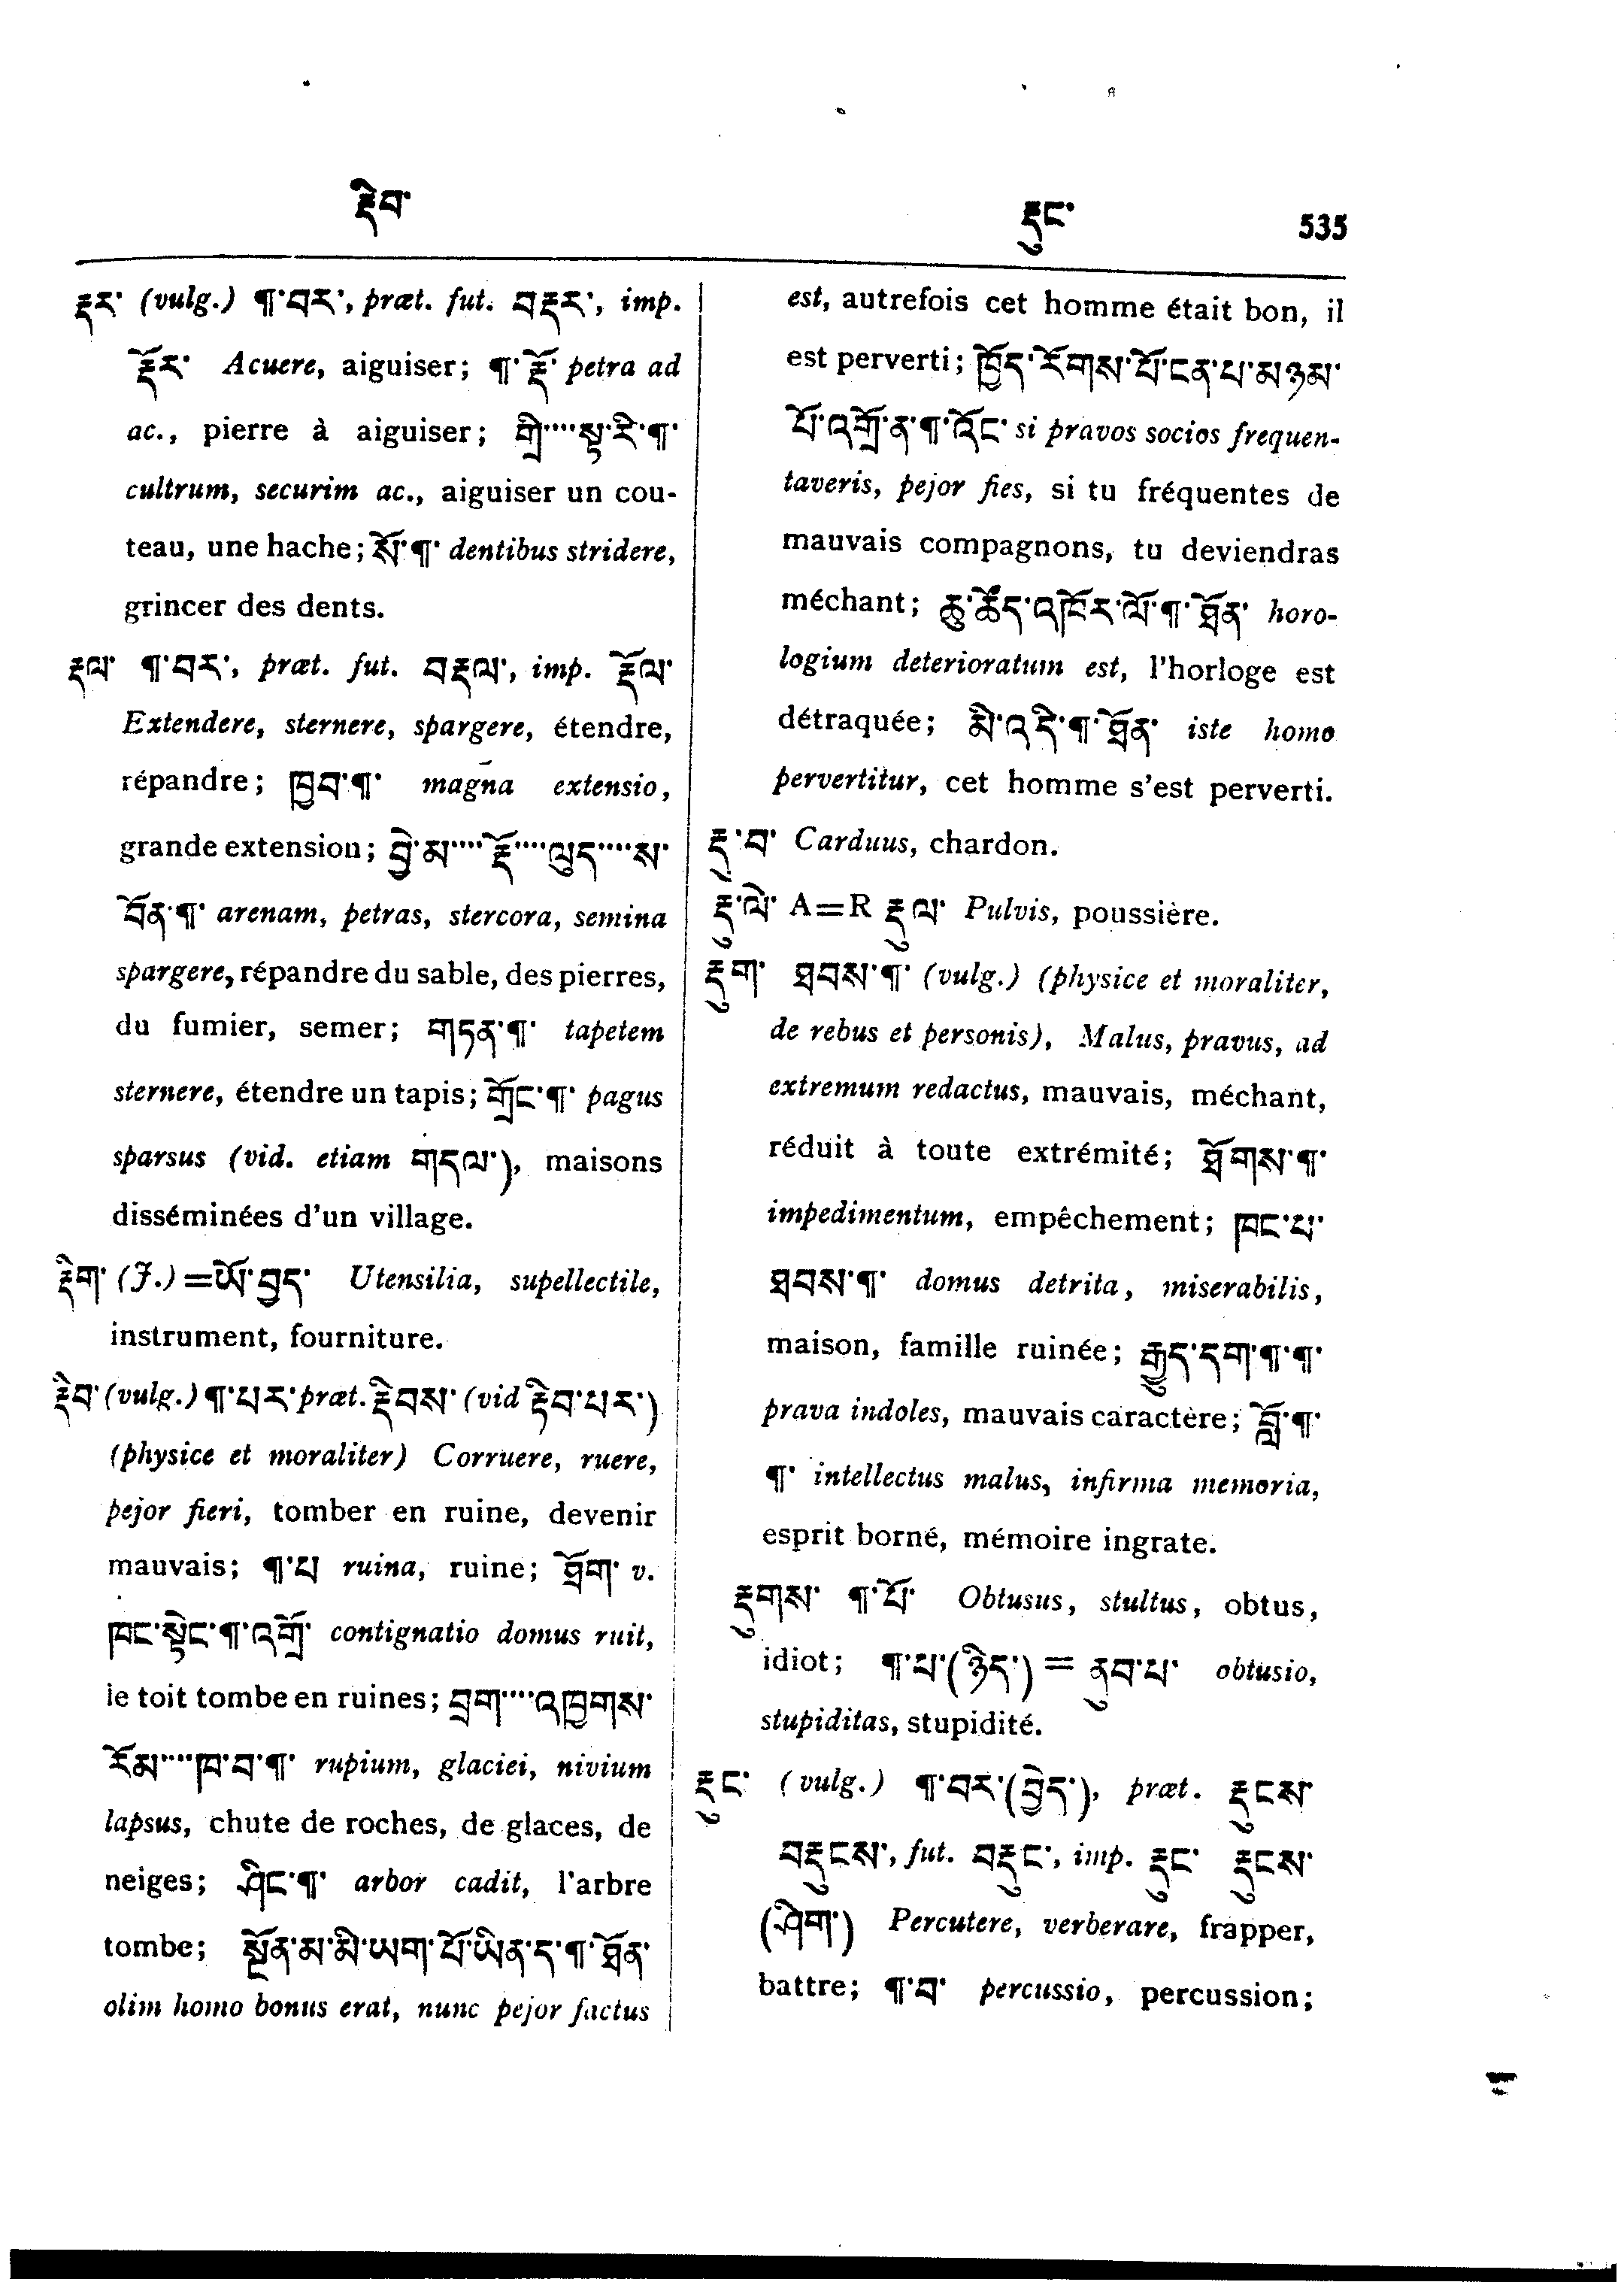 རྡིབ་
རྡུང་
535
རྡར་ (vulg.) ¶་བར་, præt. fut. བརྡར་, imp.
རྡོར་ Acuere, aiguiser; ¶་རྡོ་ petra ad
ac., pierre à aiguiser; གྲི་་་་སྟ་རེ་¶་
cultrum, securim ac., aiguiser un cou-
teau, une hache; སོ་¶་ dentibus stridere,
grincer des dents.
རྡལ་ ¶་བར་, præt. fut. བརྡལ་, imp. རྡོལ་
Extendere, sternere, spargere, étendre,
répandre; ཁྱབ་¶་ magna extensio,
grande extension; བྱེ་མ་་་་རྡོ་་་་ལུད་་་་ས་
བོན་¶་ arenam, petras, stercora, semina
spargere, répandre du sable, des pierres,
du fumier, semer; གདན་¶་ tapetem
sternere, étendre un tapis; གྲོང་¶་ pagus
sparsus (vid. etiam གདལ་), maisons
disséminées d'un village.
རྡིག་ (J.) =ཡོ་བྱད་ Utensilia, supellectile,
instrument, fourniture.
རྡིབ་ (vulg.) ¶་པར་ præt. རྡིབས་ (vid རྡིབ་པར་)
(physice et moraliter) Corruere, ruere,
pejor fieri, tomber en ruine, devenir
mauvais; ¶་པ ruina, ruine; ཐོག་ v.
ཁང་སྟེང་¶་འགྲོ་ contignatio domus ruit,
le toit tombe en ruines; བྲག་་་་འཁྱགས་
རོམ་་་་ཁ་བ་¶་ rupium, glaciei, nivium
lapsus, chute de roches, de glaces, de
neiges; ཤིང་¶་ arbor cadit, l'arbre
tombe; སྔོན་མ་མི་ཡག་པོ་ཡིན་ད་¶་ཐོན་
olim homo bonus erat, nunc pejor factus
est, autrefois cet homme était bon, il
est perverti; ཁྱོད་རོགས་པོ་ངན་པ་མཉམ་
པོ་འགྲོ་ན་¶་འོང་ si pravos socios frequen-
taveris, pejor fies, si tu fréquentes de
mauvais compagnons, tu deviendras
méchant; ཆུ་ཚོད་འཁོར་ལོ་¶་ཐོན་ horo-
logium deterioratum est, l'horloge est
détraquée; མི་འདི་¶་ཐོན་ iste homo
pervertitur, cet homme s'est perverti.
རྡུ་བ་ Carduus, chardon.
རྡུ་ལེ་ A=R རྡུལ་ Pulvis, poussière.
རྡུག་ ཐབས་¶་ (vulg.) (physice et moraliter,
de rebus et personis), Malus, pravus, ad
extremum redactus, mauvais, méchant,
réduit à toute extrémité; ཐོགས་¶་
impedimentum, empêchement; ཁང་པ་
ཐབས་¶་ domus detrita, miserabilis,
maison, famille ruinée; རྒྱུད་དག་¶་¶་
prava indoles, mauvais caractère; བློ་¶་
¶་ intellectus malus, infirma memoria,
esprit borné, mémoire ingrate.
རྡུགས་ ¶་པོ་ Obtusus, stultus, obtus,
idiot; ¶་པ་(ཉིད་) = ནུབ་པ་ obtusio,
stupiditas, stupidité.
རྡུང་ (vulg.) ¶་བར་(བྱེད་), præt. རྡུངས་
བརྡུངས་, fut. བརྡུང་, imp. རྡུང་ རྡུངས་
(ཤིག་) Percutere, verberare, frapper,
battre; ¶་བ་ percussio, percussion;